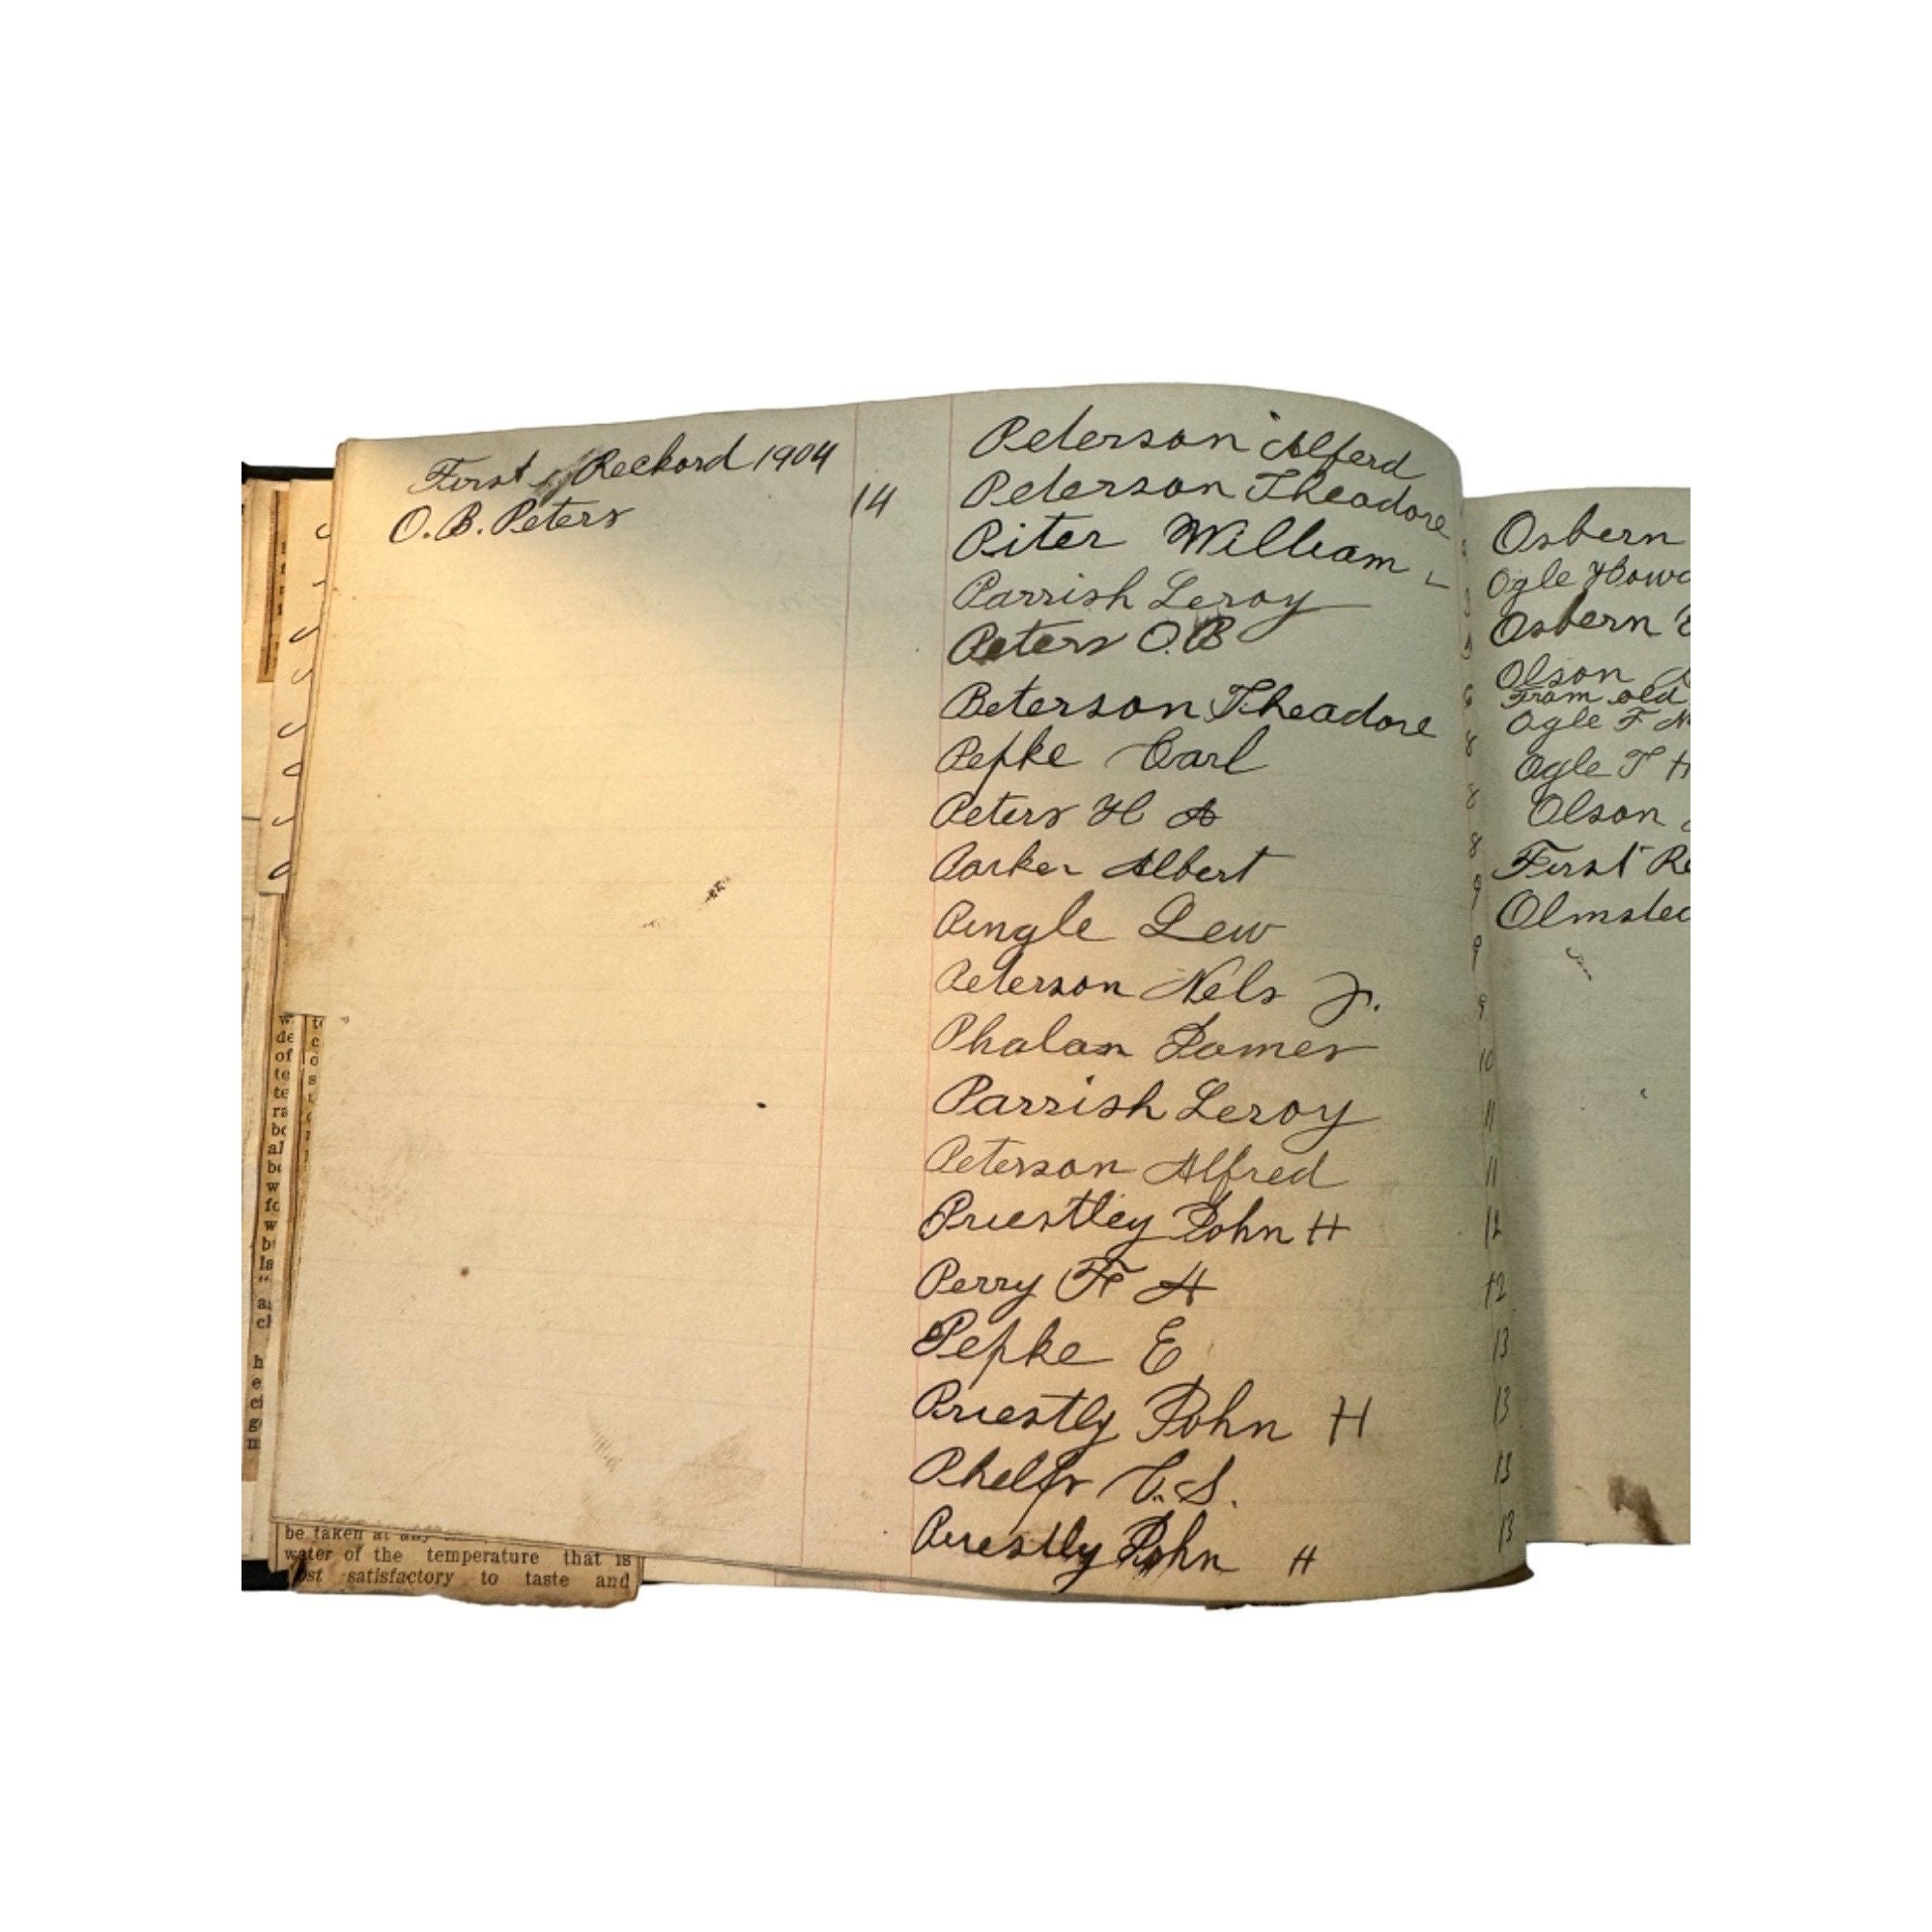 First Reckord 1904
O.B. Peters 14
Peterson Alferd
Peterson Theadore
Piter William
Parrish Leroy
Peters O.B
Peterson Theadore 6
Pepke Carl 8
Peters H A 8
Parker Albert 8
Pingle Lew 9
Peterson Nels Jr. 9
Phalan James 9
Parrish Leroy 10
Peterson Alfred 11
Priestley John H 11
Perry F A 12
Pepke E 12
Priestly John H 13
Phelps C.S. 13
Priestly John H 13
13
Osbern
Ogle Howa
Osbern E
Olson
From old
Ogle F
Ogle F H
Olson
First Re
Olmsted
be taken at any
water of the temperature that is
satisfactory to taste and